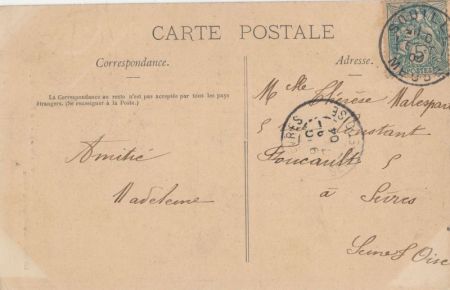 CARTE POSTALE
Correspondance.
Adresse.
La Correspondance au recto n'est pas acceptée par tous les pays
étrangers. (Se renseigner à la Poste.)
Amitié
Madeleine
Mlle Thérèse Malespar
5 Constant
Foucault 5
à Sèvres
Seine & Oise
5
POSTES
SÈVRES
04